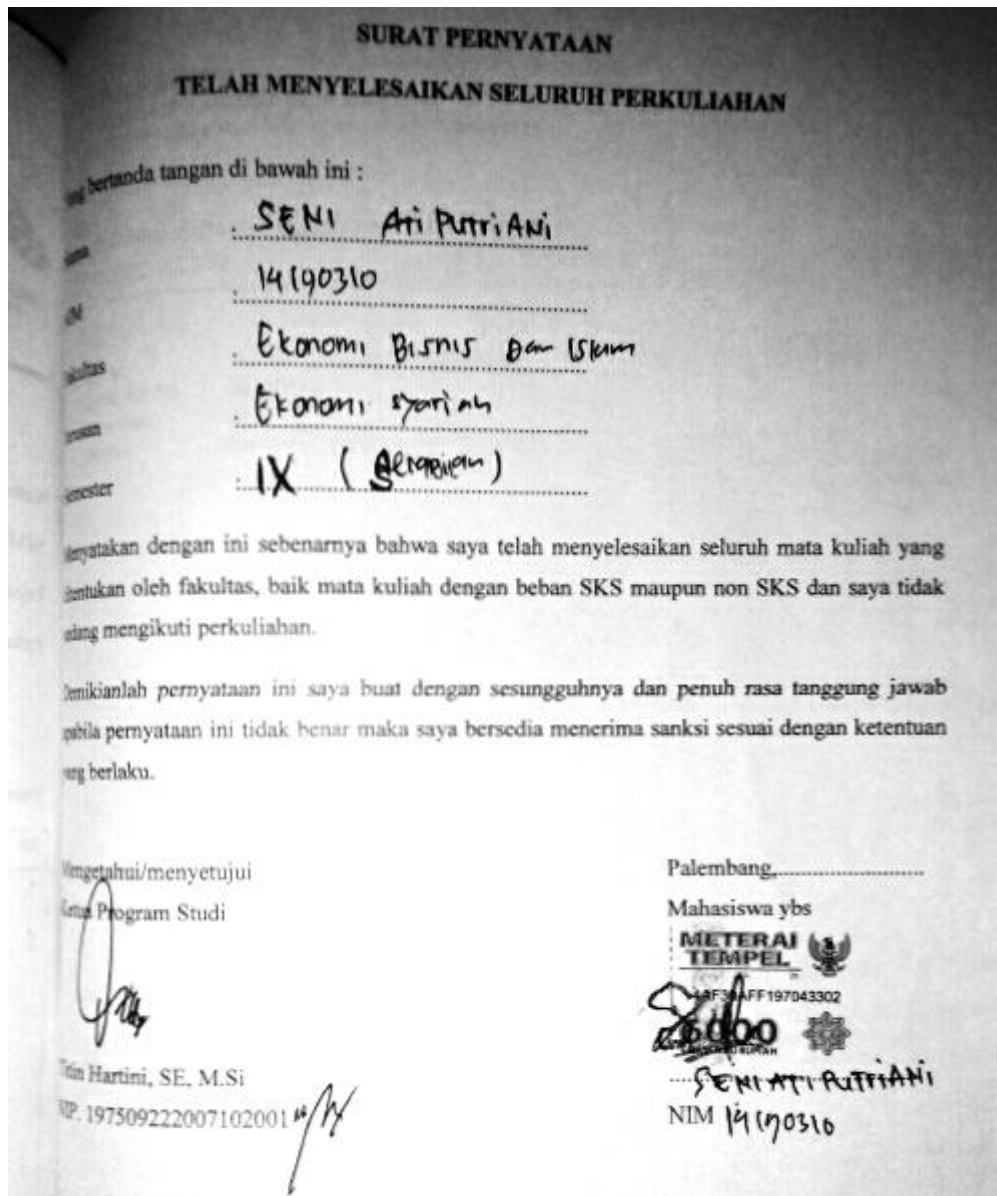 SURAT PERNYATAAN
TELAH MENYELESAIKAN SELURUH PERKULIAHAN
bertanda tangan di bawah ini :
: SENI Ati PutriANi
14190310
: Ekonomi Bisnis Dan Islam
: Ekonomi syariah
semester : IX (Sembilan)
Menyatakan dengan ini sebenarnya bahwa saya telah menyelesaikan seluruh mata kuliah yang
ditentukan oleh fakultas, baik mata kuliah dengan beban SKS maupun non SKS dan saya tidak
sedang mengikuti perkuliahan.
Demikianlah pernyataan ini saya buat dengan sesungguhnya dan penuh rasa tanggung jawab
apabila pernyataan ini tidak benar maka saya bersedia menerima sanksi sesuai dengan ketentuan
yang berlaku.
Mengetahui/menyetujui
Ketua Program Studi
Hartini, SE, M.Si
NIP. 197509222007102001
Palembang,..............................
Mahasiswa ybs
METERAI
TEMPEL
AFF197043302
6000
SENI ATI PUTRIANI
NIM 14190310